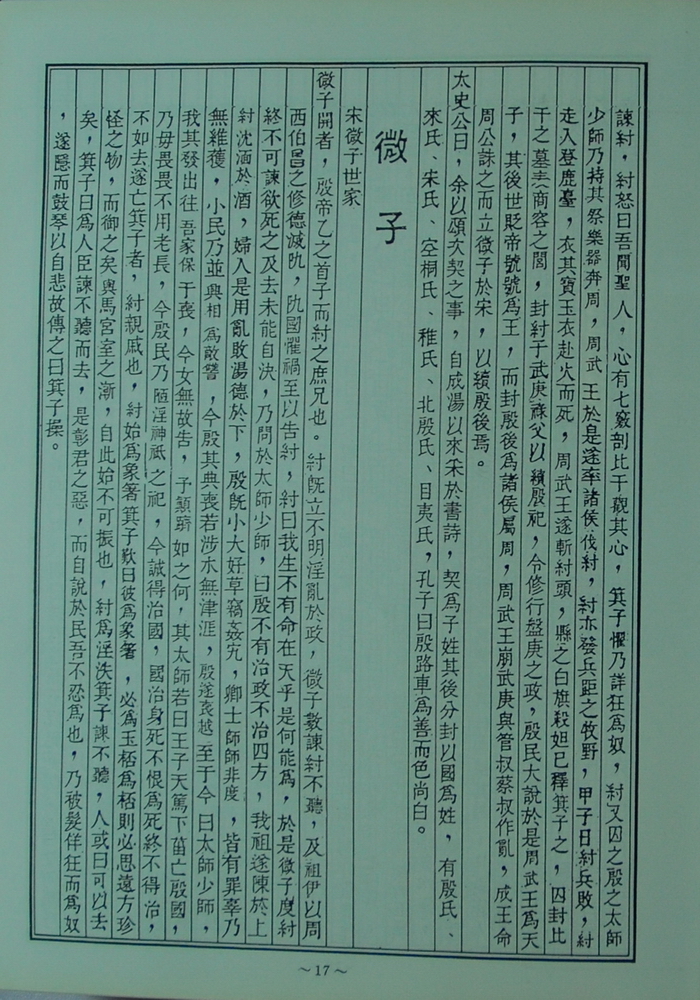 諫紂，紂怒曰吾聞聖人，心有七竅剖比干觀其心，箕子懼乃詳狂為奴，紂又囚之殷之太師
少師乃持其祭樂器奔周，周武王於是遂率諸侯伐紂，紂亦發兵距之牧野，甲子日紂兵敗，紂
走入登鹿臺，衣其寶玉衣赴火而死，周武王遂斬紂頭，縣之白旗殺妲己釋箕子之，囚封比
干之墓表商容之閭，封紂子武庚祿父以續殷祀，令修行盤庚之政，殷民大說於是周武王為天
子，其後世貶帝號號為王，而封殷後為諸侯屬周，周武王崩武庚與管叔蔡叔作亂，成王命
周公誅之而立微子於宋，以續殷後焉。
太史公曰，余以頌次契之事，自成湯以來采於書詩，契為子姓其後分封以國為姓，有殷氏、
來氏、宋氏、空桐氏、稚氏、北殷氏、目夷氏，孔子曰殷路車為善而色尚白。
微子
宋微子世家
微子開者，殷帝乙之首子而紂之庶兄也。紂既立不明淫亂於政，微子數諫紂不聽，及祖伊以周
西伯昌之修德滅阢，阢國懼禍至以告紂，紂曰我生不有命在天乎是何能為，於是微子度紂
終不可諫欲死之及去未能自決，乃問於太師少師，曰殷不有治政不治四方，我祖遂陳於上
紂沈湎於酒，婦人是用亂敗湯德於下，殷既小大好草竊姦宄，卿士師師非度，皆有罪辜乃
無維獲，小民乃並興相為敵讐，今殷其典喪若涉水無津涯，殷遂喪越至于今曰太師少師，
我其發出往吾家保于喪，今女無故告，予顛躋如之何，其太師若曰王子天篤下菑亡殷國，
乃毋畏畏不用老長，今殷民乃陋淫神祇之祀，今誠得治國，國治身死不恨為死終不得治，
不如去遂亡箕子者，紂親戚也，紂始為象箸箕子歎曰彼為象箸，必為玉桮為桮則必思遠方珍
怪之物，而御之矣輿馬宮室之漸，自此始不可振也，紂為淫泆箕子諫不聽，人或曰可以去
矣，箕子曰為人臣諫不聽而去，是彰君之惡，而自說於民吾不忍為也，乃被髮佯狂而為奴
，遂隱而鼓琴以自悲故傳之曰箕子操。
～17～